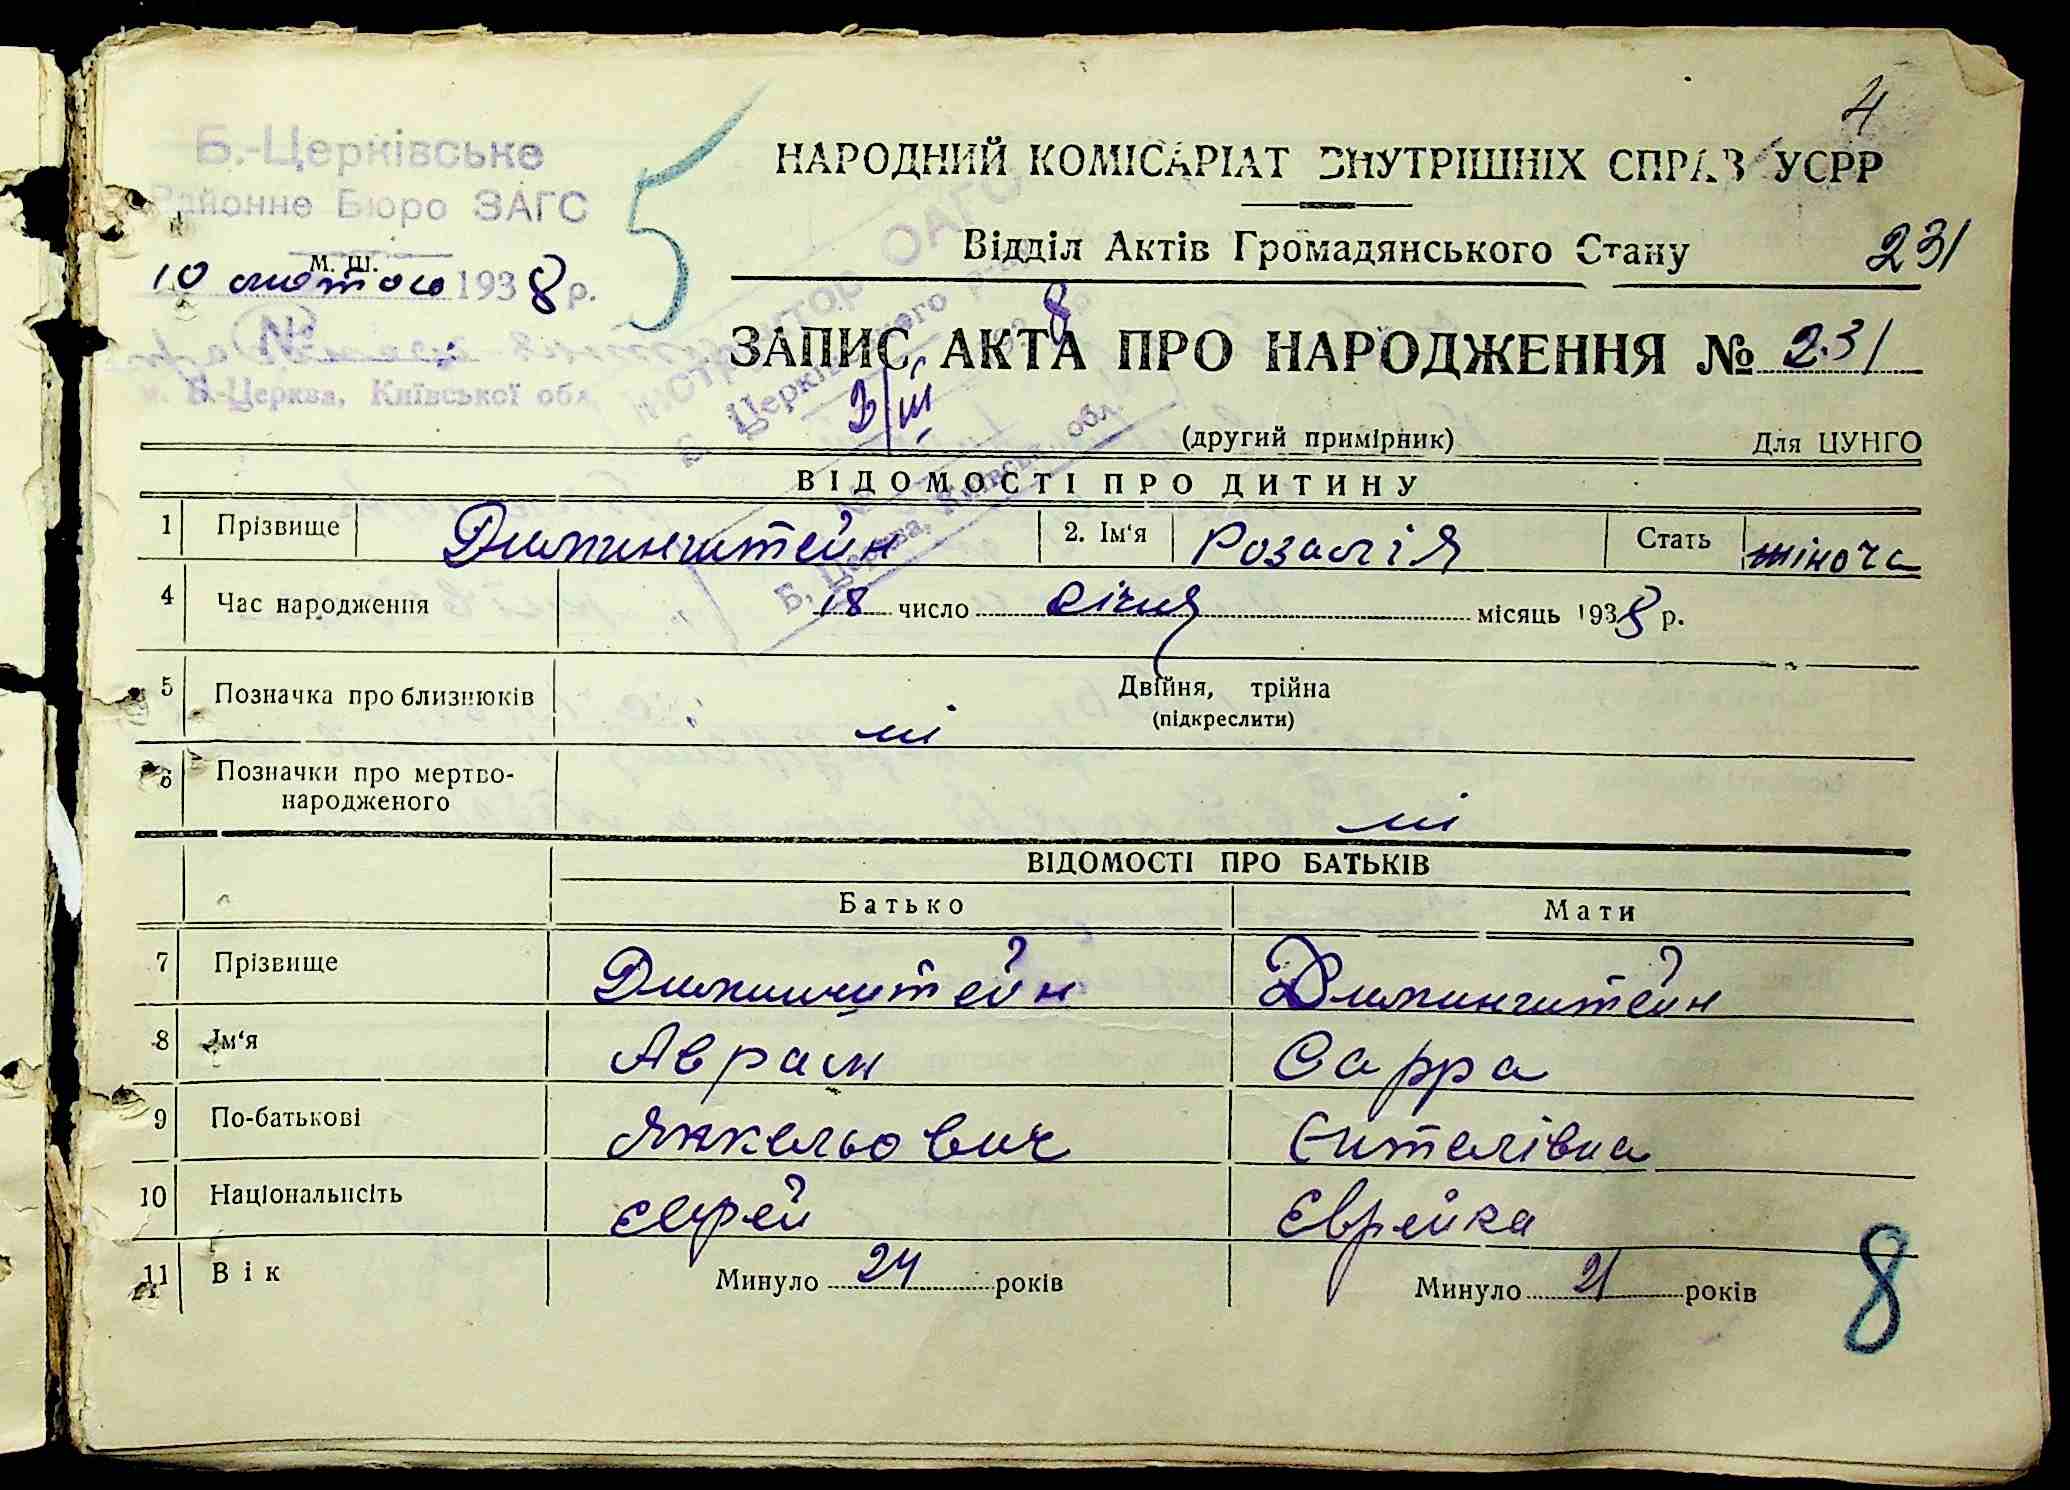 4
Б.-Церківське
Районне Бюро ЗАГС
М. Ш.
10 лютого 1938 р.
№
м. Б.-Церква, Київської обл.
5
НАРОДНИЙ КОМІСАРІАТ ВНУТРІШНІХ СПРАВ УСРР
Відділ Актів Громадянського Стану
231
8
ЗАПИС АКТА ПРО НАРОДЖЕННЯ № 231
(другий примірник)
Для ЦУНГО
Б. Церква, Київськ. обл.
ВІДОМОСТІ ПРО ДИТИНУ
1 Прізвище Диминштейн 2. Ім'я Розалія Стать жіноча
4 Час народження 18 число січня місяць 1938 р.
5 Позначка про близнюків ні Двійня, трійна
(підкреслити)
6 Позначки про мертво-
народженого ні
ВІДОМОСТІ ПРО БАТЬКІВ
Батько Мати
7 Прізвище Диминштейн Диминштейн
8 Ім'я Аврам Сарра
9 По-батькові Янкельович
10 Національність єврей Єврейка
11 Вік Минуло 24 років Минуло 21 років
8